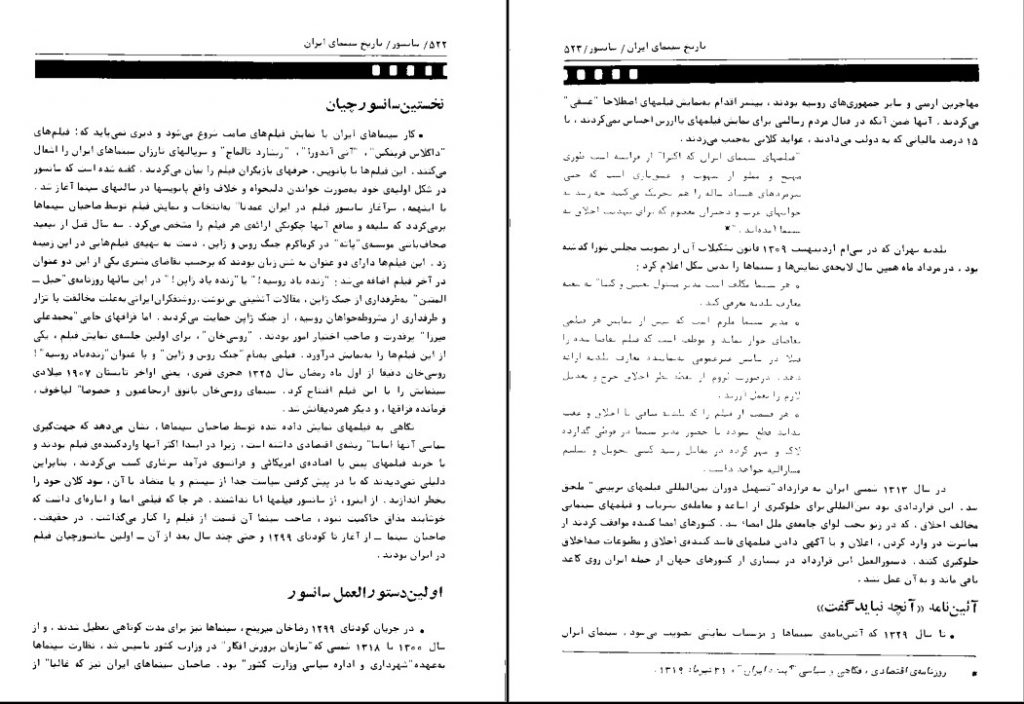 ۵۲۲/ سانسور/ تاریخ سینمای ایران
نخستین سانسورچیان
• کار سینماهای ایران با نمایش فیلم‌های صامت شروع می‌شود و دیری نمی‌پاید که؛ فیلم‌های
"داگلاس فربنکس"، "آنی آندورا"، "ریشارد تالماج" و سریالهای تارزان سینماهای ایران را اشغال
می‌کنند. این فیلم‌ها با پانویس، حرفهای بازیگران فیلم را بیان می‌کردند. گفته شده است که سانسور
در شکل اولیه‌ی خود به‌صورت خواندن دلبخواه و خلاف واقع پانویسها در سالنهای سینما آغاز شد.
با اینهمه، سرآغاز سانسور فیلم در ایران عمدتا" به‌انتخاب و نمایش فیلم توسط صاحبان سینماها
برمی‌گردد که سلیقه و منافع آنها چگونگی ارائه‌ی هر فیلم را مشخص می‌کرد. سه سال قبل از تبعید
صحاف‌باشی موسسه‌ی "پاته" در گرماگرم جنگ روس و ژاپن، دست به تهیه‌ی فیلم‌هایی در این زمینه
زد. این فیلم‌ها دارای دو عنوان به شش زبان بودند که برحسب تقاضای مشتری یکی از این دو عنوان
در آخر فیلم اضافه می‌شد: "زنده باد روسیه!" یا "زنده باد ژاپن!" در این سالها روزنامه‌ی "حبل ـ
المتین" به‌طرفداری از جنگ ژاپن، مقالات آتشینی می‌نوشت. روشنفکران ایرانی به‌علت مخالفت با تزار
و طرفداری از مشروطه‌خواهان روسیه، از جنگ ژاپن حمایت می‌کردند. اما قزاقهای حامی "محمدعلی
میرزا" پرقدرت و صاحب اختیار امور بودند. "روسی‌خان"، برای اولین جلسه‌ی نمایش فیلم، یکی
از این فیلم‌ها را به‌نمایش درآورد. فیلمی به‌نام "جنگ روس و ژاپن" و با عنوان "زنده‌باد روسیه"!
روسی‌خان دقیقا از اول ماه رمضان سال ۱۳۲۵ هجری قمری، یعنی اواخر تابستان ۱۹۰۷ میلادی
سینمایش را با این فیلم افتتاح کرد. سینمای روسی‌خان پاتوق ارتجاعیون و خصوصا" لیاخوف،
فرمانده قزاقها، و دیگر همردیفانش شد.
نگاهی به فیلمهای نمایش داده شده توسط صاحبان سینماها، نشان می‌دهد که جهت‌گیری
سیاسی آنها اساسا" ریشه‌ی اقتصادی داشته است، زیرا در ابتدا اکثر آنها واردکننده‌ی فیلم بودند و
با خرید فیلمهای پیش پا افتاده‌ی امریکائی و فرانسوی درآمد سرشاری کسب می‌کردند، بنابراین
دلیلی نمی‌دیدند که با در پیش گرفتن سیاست جدا از سیستم و یا متضاد با آن، سود کلان خود را
بخطر اندازند. از اینرو، از سانسور فیلمها ابا نداشتند. هر جا که فیلمی ایما و اشاره‌ای داشت که
خوشایند مذاق حاکمیت نبود، صاحب سینما آن قسمت از فیلم را کنار می‌گذاشت. در حقیقت،
صاحبان سینما ـ از آغاز تا کودتای ۱۲۹۹ و حتی چند سال بعد از آن ـ اولین سانسورچیان فیلم
در ایران بودند.
اولین دستورالعمل سانسور
• در جریان کودتای ۱۲۹۹ رضاخان میرپنج، سینماها نیز برای مدت کوتاهی تعطیل شدند. و از
سال ۱۳۰۰ تا ۱۳۱۸ شمسی که "سازمان پرورش افکار" در وزارت کشور تاسیس شد، نظارت سینماها
به‌عهده "شهرداری و اداره سیاسی وزارت کشور" بود. صاحبان سینماهای ایران نیز که غالبا" از
تاریخ سینمای ایران/ سانسور/ ۵۲۳
مهاجرین ارمنی و سایر جمهوری‌های روسیه بودند، بیشتر اقدام به‌نمایش فیلمهای اصطلاحا "عشقی"
می‌کردند. آنها ضمن آنکه در قبال مردم رسالتی برای نمایش فیلمهای باارزش احساس نمی‌کردند، با
۱۵ درصد مالیاتی که به دولت می‌دادند، عواید کلانی به‌جیب می‌زدند.
"فیلمهای سینمای ایران که اکثرا" از فرانسه است طوری
مهیج و مملو از شهوت و عشق‌بازی است که حتی
پیرمردهای هشتاد ساله را هم تحریک می‌کنید چه رسد به
جوانهای عزب و دختران معصوم که برای تهذیب اخلاق به
سینما آمده‌اند."*
بلدیه تهران که در سی‌ام اردیبهشت ۱۳۰۹ قانون تشکیلات آن از تصویب مجلس شورا گذشته
بود، در مرداد ماه همین سال لایحه‌ی نمایش‌ها و سینماها را بدین شکل اعلام کرد:
○ هر سینما مکلف است مدیر مسئول تعیین و کتبا" به شعبه
معارف بلدیه معرفی کند.
○ مدیر سینما ملزم است که پیش از نمایش هر فیلمی
تقاضای جواز نماید و موظف است که فیلم تقاضا شده را
قبلا در نمایش غیرعمومی به‌نماینده معارف بلدیه ارائه
دهد. درصورت لزوم از نقطه نظر اخلاق جرح و تعدیل
لازم را بعمل آورند.
○ هر قسمت از فیلم را که بلدیه منافی با اخلاق و عفت
بداند قطع نموده با حضور مدیر سینما در قوطی گذارده
لاک و مهر کرده در مقابل رسید کتبی تحویل و تسلیم
مشارالیه خواهد داشت.
در سال ۱۳۱۳ شمسی ایران به قرارداد "تسهیل دوران بین‌المللی فیلمهای تربیتی" ملحق
شد. این قراردادی بود بین‌المللی برای جلوگیری از اشاعه و معامله‌ی نشریات و فیلمهای سینمایی
مخالف اخلاق، که در ژنو تحت لوای جامعه‌ی ملل امضاء شد. کشورهای امضا کننده موافقت کردند از
مباشرت در وارد کردن، اعلان و یا آگهی دادن فیلمهای فاسد کننده‌ی اخلاق و مطبوعات ضداخلاق
جلوگیری کنند. دستورالعمل این قرارداد در بسیاری از کشورهای جهان از جمله ایران روی کاغذ
باقی ماند و به آن عمل نشد.
آئین‌نامه «آنچه نباید گفت»
• تا سال ۱۳۲۹ که آئین‌نامه‌ی سینماها و موسسات نمایشی تصویب می‌شود، سینمای ایران
* روزنامه‌ی اقتصادی، فکاهی و سیاسی "آینده ایران"، ۳۱ تیرماه ۱۳۱۹.